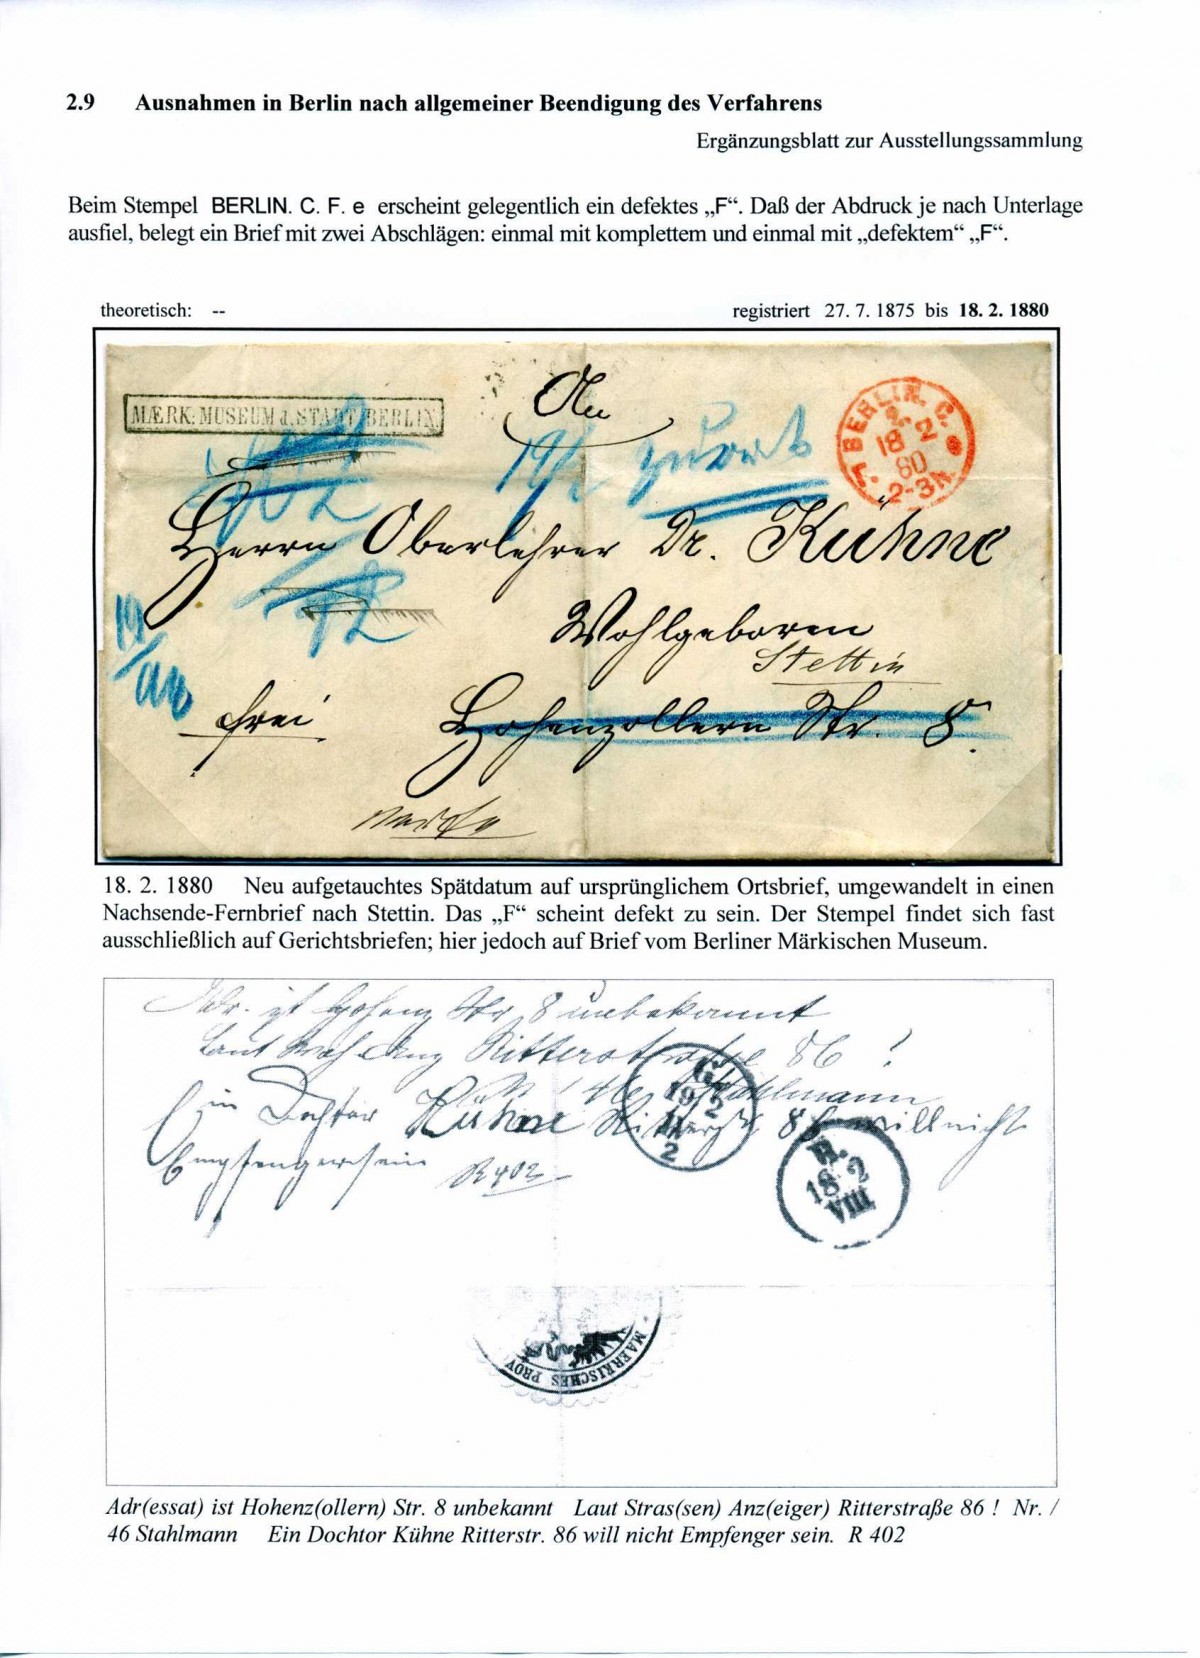 2.9 Ausnahmen in Berlin nach allgemeiner Beendigung des Verfahrens
Ergänzungsblatt zur Ausstellungssammlung
Beim Stempel BERLIN. C. F. e erscheint gelegentlich ein defektes „F“. Daß der Abdruck je nach Unterlage
ausfiel, belegt ein Brief mit zwei Abschlägen: einmal mit komplettem und einmal mit „defektem“ „F“.
theoretisch: -- registriert 27. 7. 1875 bis 18. 2. 1880
MÆRK: MUSEUM d. STADT BERLIN
An
BERLIN. C.
18 2
80
2-3N.
19/2 zurück
Herrn Oberlehrer Dr. Kühne
Wohlgeboren
Stettin
frei
Hohenzollern Str. 8.
18. 2. 1880 Neu aufgetauchtes Spätdatum auf ursprünglichem Ortsbrief, umgewandelt in einen
Nachsende-Fernbrief nach Stettin. Das „F“ scheint defekt zu sein. Der Stempel findet sich fast
ausschließlich auf Gerichtsbriefen; hier jedoch auf Brief vom Berliner Märkischen Museum.
Adr. ist Hohenz Str 8 unbekannt
Laut Stras Anz Ritterstraße 86 !
N / 46 Stahlmann
Ein Dochtor Kühne Ritterstr 86 will nicht
Empfenger sein R 402
19 2
2
18 2
VIII
MAERKISCHES PROV
Adr(essat) ist Hohenz(ollern) Str. 8 unbekannt Laut Stras(sen) Anz(eiger) Ritterstraße 86 ! Nr. /
46 Stahlmann Ein Dochtor Kühne Ritterstr. 86 will nicht Empfenger sein. R 402